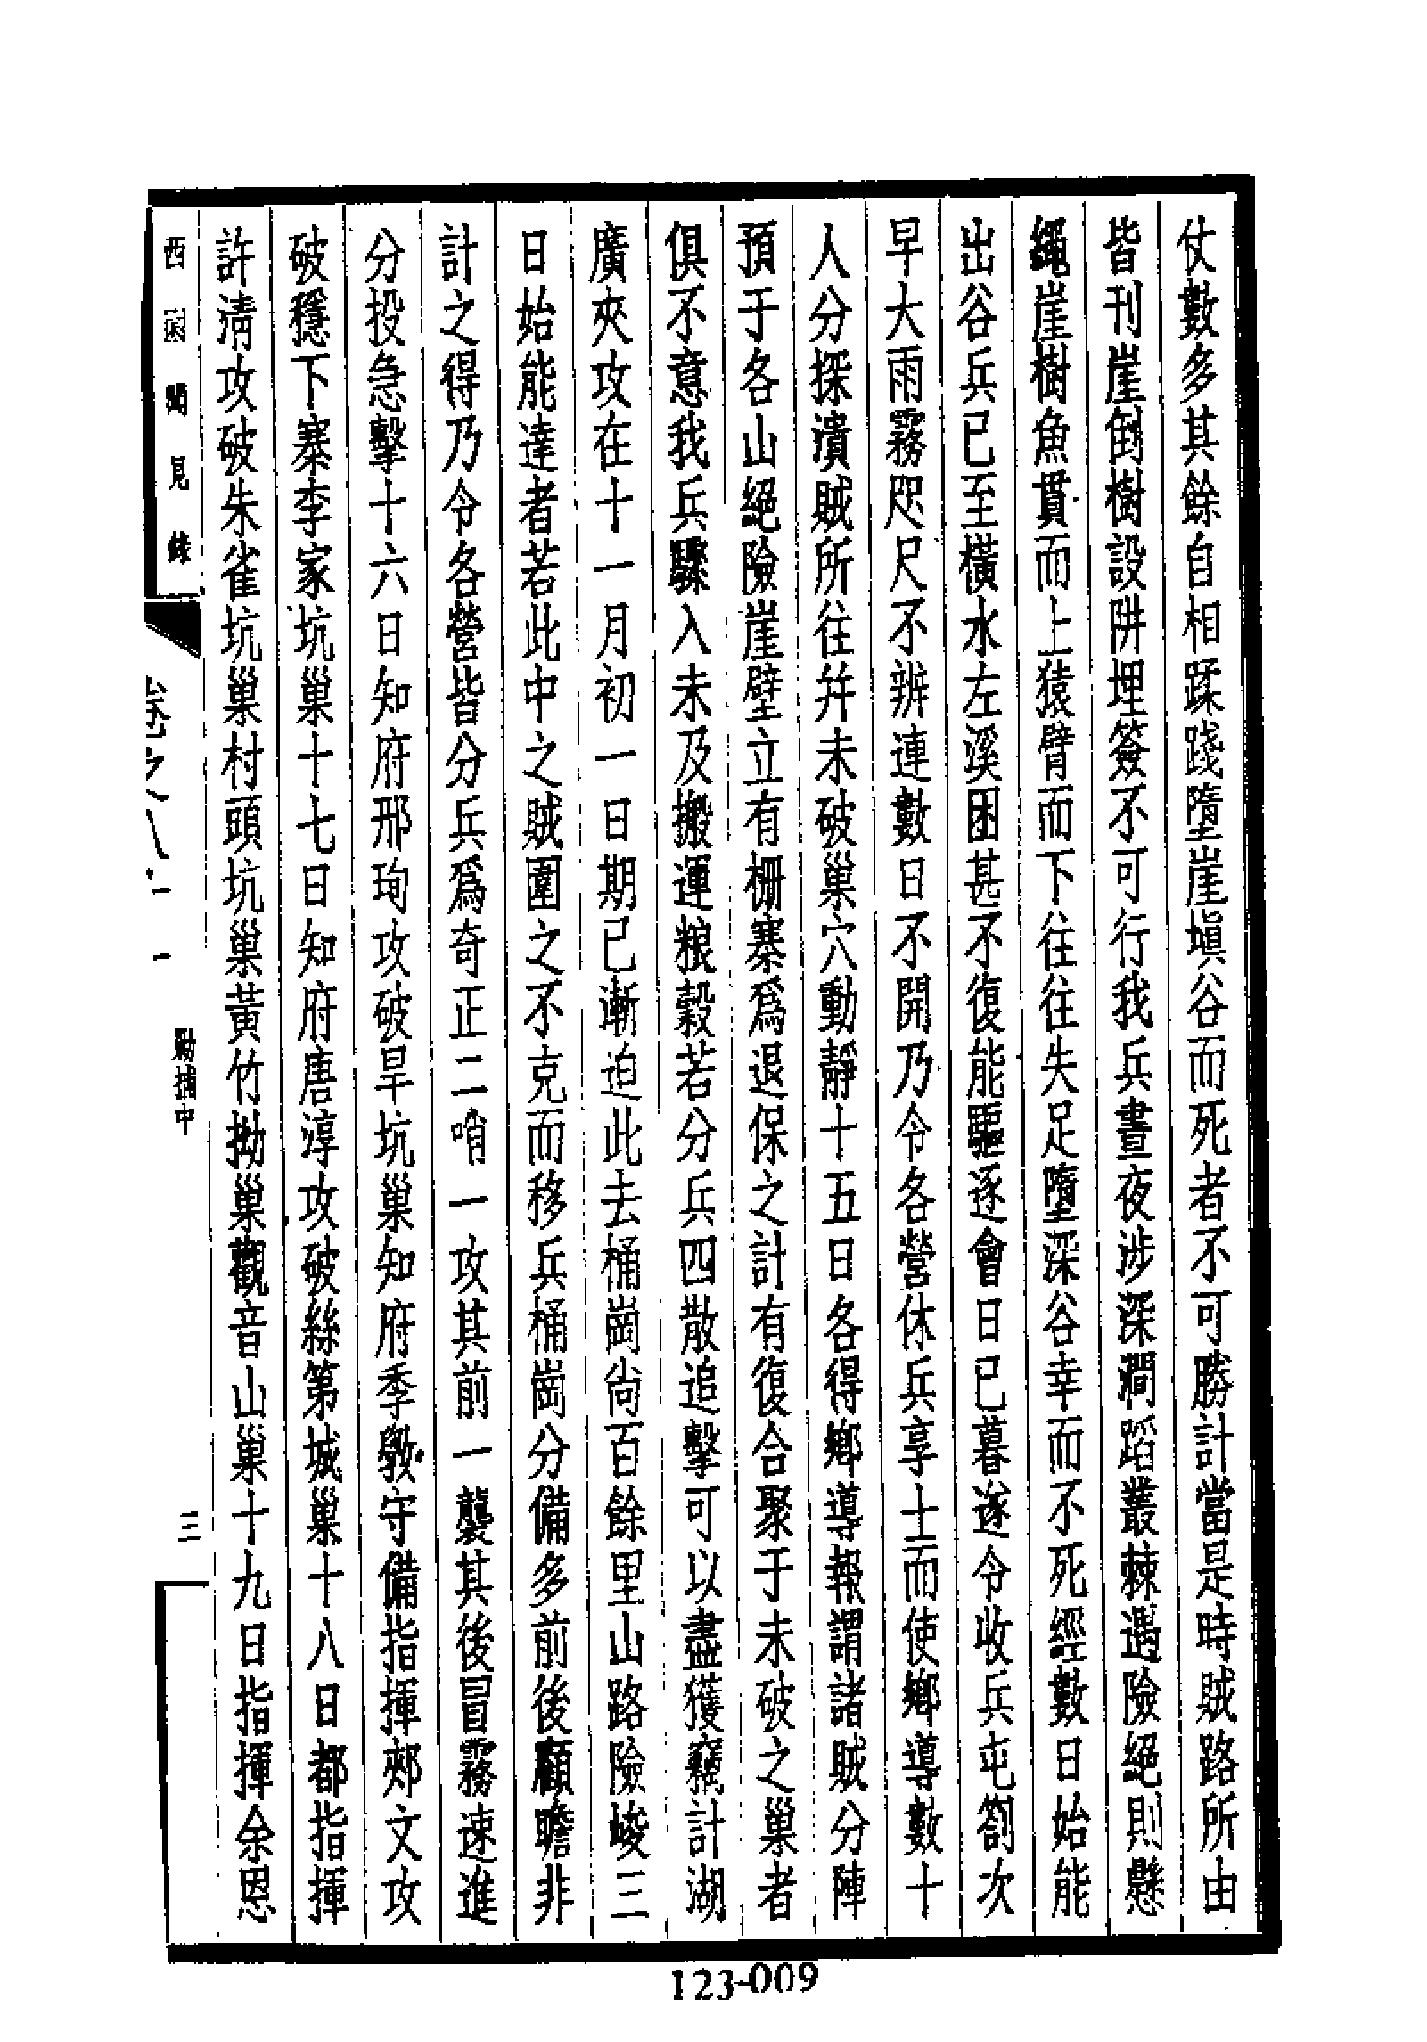 仗數多其餘自相蹂踐墮崖塡谷而死者不可勝計當是時賊路所由
皆刊崖倒樹設阱埋簽不可行我兵晝夜涉深澗蹈叢棘遇險絕則懸
繩崖樹魚貫而上猿臂而下往往失足墮深谷幸而不死經數日始能
出谷兵已至橫水左溪困甚不復能驅逐會日已暮遂令收兵屯劄次
早大雨霧咫尺不辨連數日不開乃令各營休兵享士而使鄕導數十
人分探潰賊所往幷未破巢穴動靜十五日各得鄕導報謂諸賊分陣
預于各山絕險崖壁立有柵寨爲退保之計有復合聚于未破之巢者
俱不意我兵驟入未及搬運粮穀若分兵四散追擊可以盡獲竊計湖
廣夾攻在十一月初一日期已漸迫此去桶崗尙百餘里山路險峻三
日始能達者若此中之賊圍之不克而移兵桶崗分備多前後顧瞻非
計之得乃令各營皆分兵爲奇正二哨一攻其前一襲其後冒霧速進
分投急擊十六日知府邢珣攻破旱坑巢知府季斆守備指揮郟文攻
破穩下寨李家坑巢十七日知府唐淳攻破絲第城巢十八日都指揮
許淸攻破朱雀坑巢村頭坑巢黃竹拗巢觀音山巢十九日指揮余恩
西園聞見錄
卷之八十一
勦捕中
三
123-009